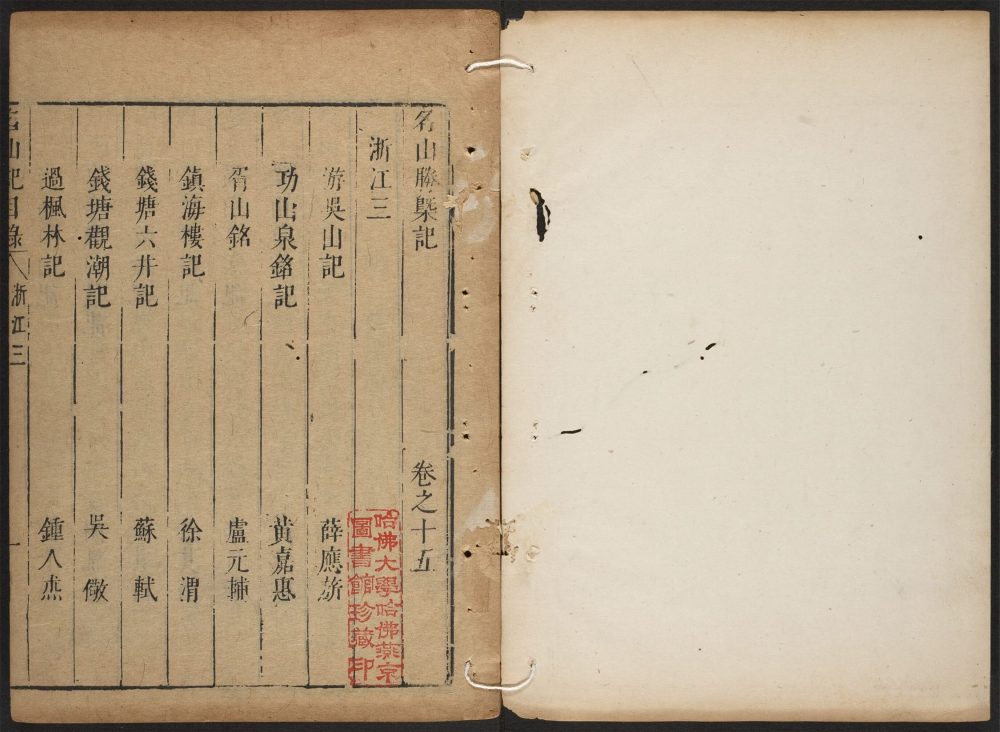 名山勝槩記　卷之十五
浙江三
游吳山記　薛應旂
功山泉銘記　黃嘉惠
胥山銘　盧元輔
鎮海樓記　徐渭
錢塘六井記　蘇軾
錢塘觀潮記　吳儆
過楓林記　鍾人杰
名山記目錄　浙江三　一
哈佛大學哈佛燕京
圖書館珍藏印